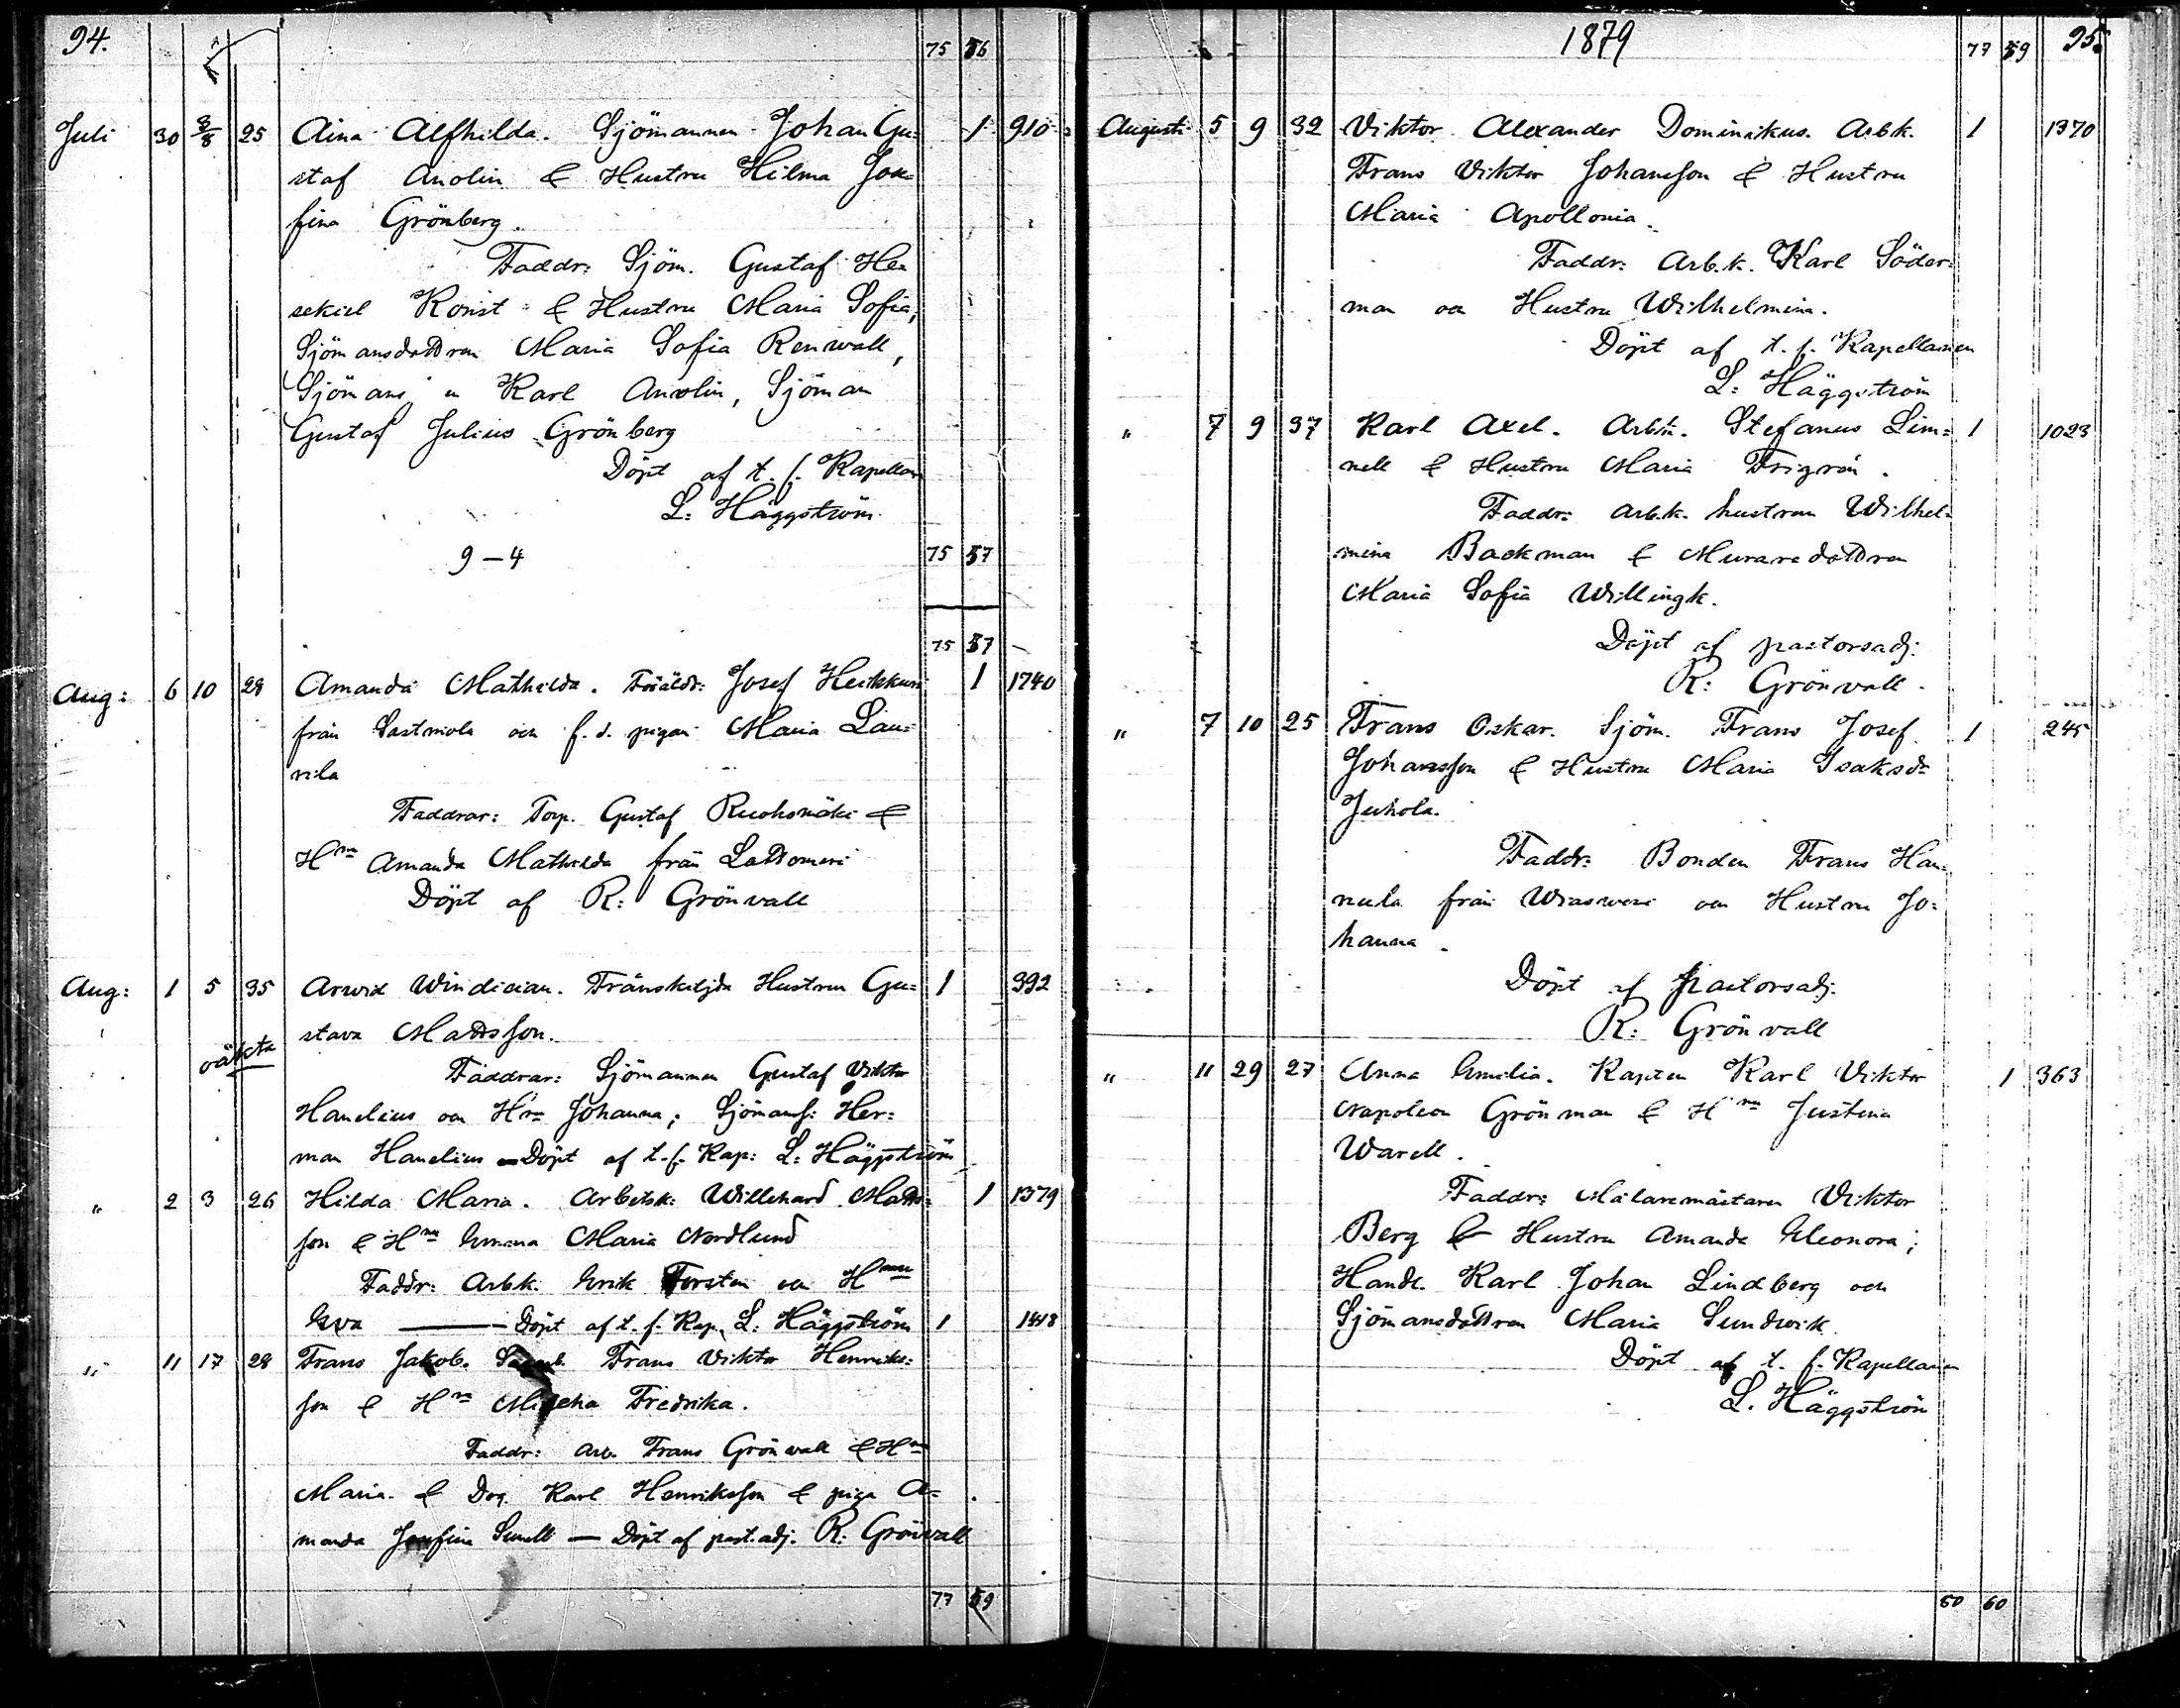 94.
75 56
Juli 30 3/8 25 Aina Alfhilda. Sjömannen Johan Gu= 1 910
staf Anolin & Hustru Hilma Jose=
fina Grönberg.
Faddr: Sjöm. Gustaf He=
sekiel Konst & Hustru Maria Sofia,
Sjömansdottren Maria Sofia Renwall,
Sjömans " Karl Anolin, Sjöman
Gustaf Julius Grönberg
Döpt af t. f. Kapellan
L: Häggström
9 – 4 75 57
75 57
Aug: 6 10 28 Amanda Mathilda. Föräldr: Josef Heikkuri 1 1740
från Sastmola och f. d. pigan Maria Lau=
rila
Faddrar: Torp. Gustaf Ruohomäki &
Hru Amanda Mathilda från Lattomeri
Döpt af R: Grönvall
Aug: 1 5 35 Arwid Windician. Frånskiljda Hustrun Gu= 1 392
stava Mattsson.
oäkta
Faddrar: Sjömannen Gustaf Viktor
Hanelius och Hru Johanna; Sjömans: Her=
man Hanelius – Döpt af t. f. Kap: L: Häggström
" 2 3 26 Hilda Maria. Arbetsk: Willehard Matts= 1 1379
son & Hru Emma Maria Nordlund
Faddr: Arbk. Erik Forsten och Hru
Eva — Döpt af t. f. Kap. L: Häggström 1 1418
" 11 17 28 Frans Jakob. Frans Viktor Henriks=
son & Hru Fredrika.
Faddr: Arb. Frans Grönvall & Hru
Maria & Drg. Karl Henriksson & piga A=
manda Josefina Sunell — Döpt af past. adj. R: Grönvall
77 59
1879
77 59 95.
Augusti 5 9 32 Viktor Alexander Dominikus. Arbk. 1 1370
Frans Viktor Johansson & Hustru
Maria Apollonia.
Faddr: Arb.k. Karl Söder=
man och Hustru Wilhelmina.
Döpt af t. f. Kapellanen
L: Häggström
" 7 9 37 Karl Axel. Arbk. Stefanus Lin= 1 1023
nell & Hustru Maria Frigren.
Faddr: Arb.k. hustrun Wilhel=
mina Backman & Muraredottren
Maria Sofia Willingk.
Döpt af pastorsadj:
R: Grönvall.
" 7 10 25 Frans Oskar. Sjöm. Frans Josef 1 245
Johansson & Hustru Maria Isaksdr
Juhola.
Faddr: Bonden Frans Han=
nula från Wiasweri och Hustru Jo=
hanna.
Döpt af pastorsadj.
R: Grönvall
" 11 29 27 Anna Emilia. Kapten Karl Viktor 1 363
Napoleon Grönman & Hru Justina
Warell.
Faddr: Målaremästaren Viktor
Berg & Hustru Amanda Eleonora;
Handl. Karl Johan Lindberg och
Sjömansdottren Maria Sundwik.
Döpt af t. f. Kapellanen
L. Häggström
60